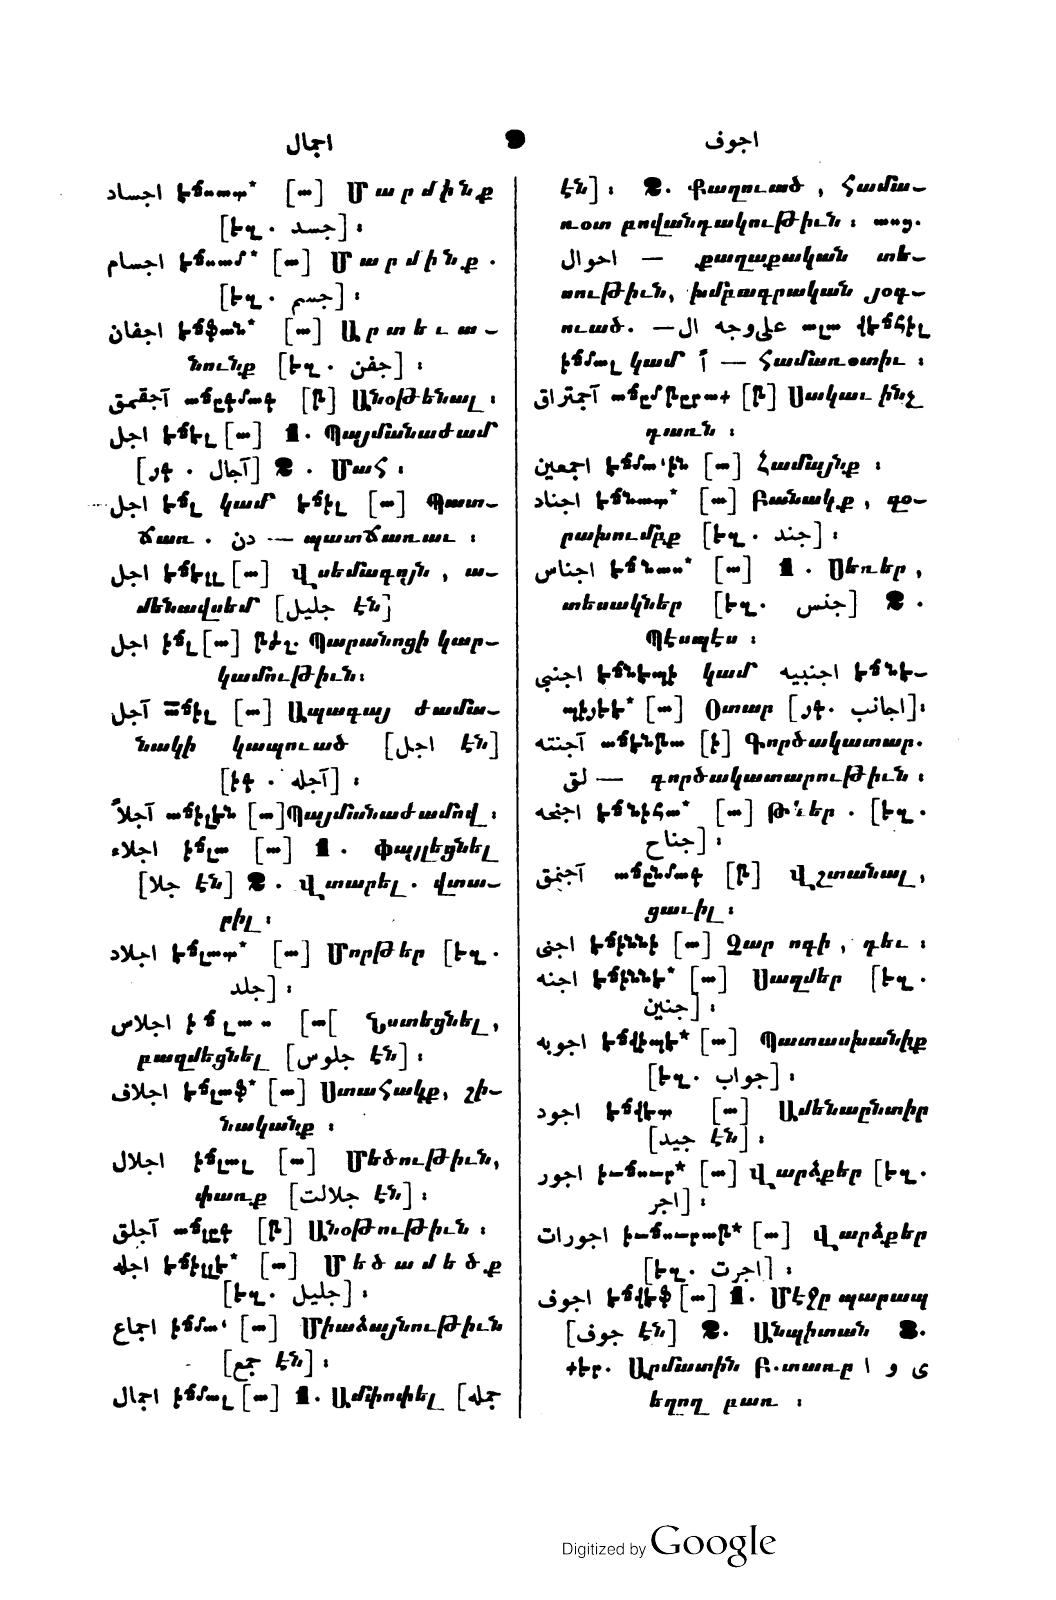 اجمال 9 اجوف
اجساد էճսատ* [ա] Մարմինք
[եզ. جسد] ։
اجسام էճսամ* [ա] Մարմինք.
[եզ. جسم] ։
اجفان էճֆան* [ա] Արտեւա-
նունք [եզ. جفن] ։
آجقمق աճըգմագ [թ] Անօթենալ ։
اجل էճէլ [ա] 1. Պայմանաժամ
[آجال . քռ] 2. Մահ ։
اجل էճլ կամ էճիլ [ա] Պատ-
ճառ. دن — պատճառաւ ։
اجل էճէլլ [ա] Վսեմագոյն, ա-
մենավսեմ [جليل էն]
اجل իճլ [ա] Պարանոցի կար-
կամութիւն։
آجل աճիլ [ա] Ապագայ ժամա-
նակի կապուած [اجل էն]
[آجله . իգ] ։
آجلاً աճիլէն [ա] Պայմանաժամով ։
اجلاء իճլա [ա] 1. Փայլեցնել
[جلا էն] 2. Վտարել. վտա-
րիլ ։
اجلاد էճլատ* [ա] Մորթեր [եզ.
جلد] ։
اجلاس իճլաս [ա] Նստեցնել,
բազմեցնել [جلوس էն] ։
اجلاف էճլաֆ* [ա] Ստահակք, շի-
նականք ։
اجلال իճլալ [ա] Մեծութիւն,
փառք [جلالت էն] ։
آجلق աճլըգ [թ] Անօթութիւն ։
اجله էճիլլէ* [ա] Մեծամեծք
[եզ. جليل] ։
اجماع իճմա' [ա] Միաձայնութիւն
[جمع էն] ։
اجمال իճմալ [ա] 1. Ամփոփել [جمله
էն] ։ 2. Քաղուած, համա-
ռօտ բովանդակութիւն ։
احوال — քաղաքական տե-
սութիւն, խմբագրական յօդ-
ուած. — على وجه ال ալա վէճհիլ
իճմալ կամ اً — համառօտիւ ։
آجمتراق աճըմթըրագ [թ] Սակաւ ինչ
դառն ։
اجمعين էճմա'ին [ա] Համայնք ։
اجناد էճնատ* [ա] Բանակք, զօ-
րախումբք [եզ. جند] ։
اجناس էճնաս* [ա] 1. Սեռեր,
տեսակներ [եզ. جنس] 2.
Պէսպէս ։
اجنبى էճնէպի կամ اجنبيه էճնէ-
պիյէ* [ա] Օտար [اجانب .քռ]։
آجنته աճէնթա [ի] Գործակատար.
لق — գործակատարութիւն ։
اجنحه էճնիհա* [ա] Թեւեր. [եզ.
جناح] ։
آجنمق աճընմագ [թ] Վշտանալ,
ցաւիլ ։
اجنى էճիննի [ա] Չար ոգի, դեւ ։
اجنه էճիննէ* [ա] Սաղմեր [եզ.
جنين] ։
اجوبه էճվիպէ* [ա] Պատասխանիք
[եզ. جواب] ։
اجود էճվէտ [ա] Ամենաընտիր
[جيد էն] ։
اجور իւճուր* [ա] Վարձքեր [եզ.
اجر] ։
اجورات իւճուրաթ* [ա] Վարձքեր
[եզ. اجرت] ։
اجوف էճվէֆ [ա] 1. Մէջը պարապ
[جوف էն] 2. Անպիտան 3.
քեր. Արմատին բ.տառը ا و ى
եղող բառ ։
Digitized by Google